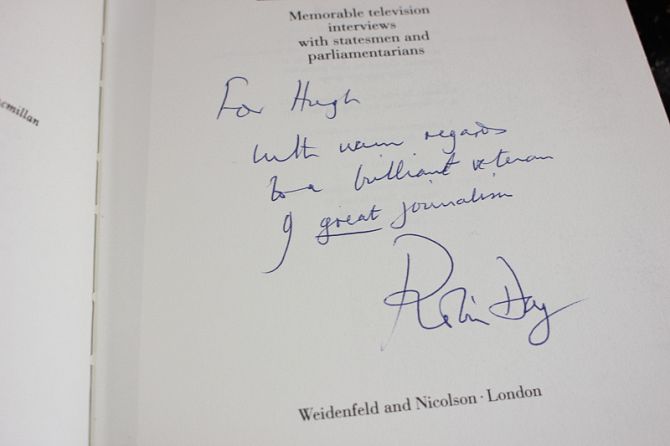 cmillan
Memorable television
interviews
with statesmen and
parliamentarians
For Hugh
with warm regards
to a brilliant veteran
of great journalism
Robin Day
Weidenfeld and Nicolson · London